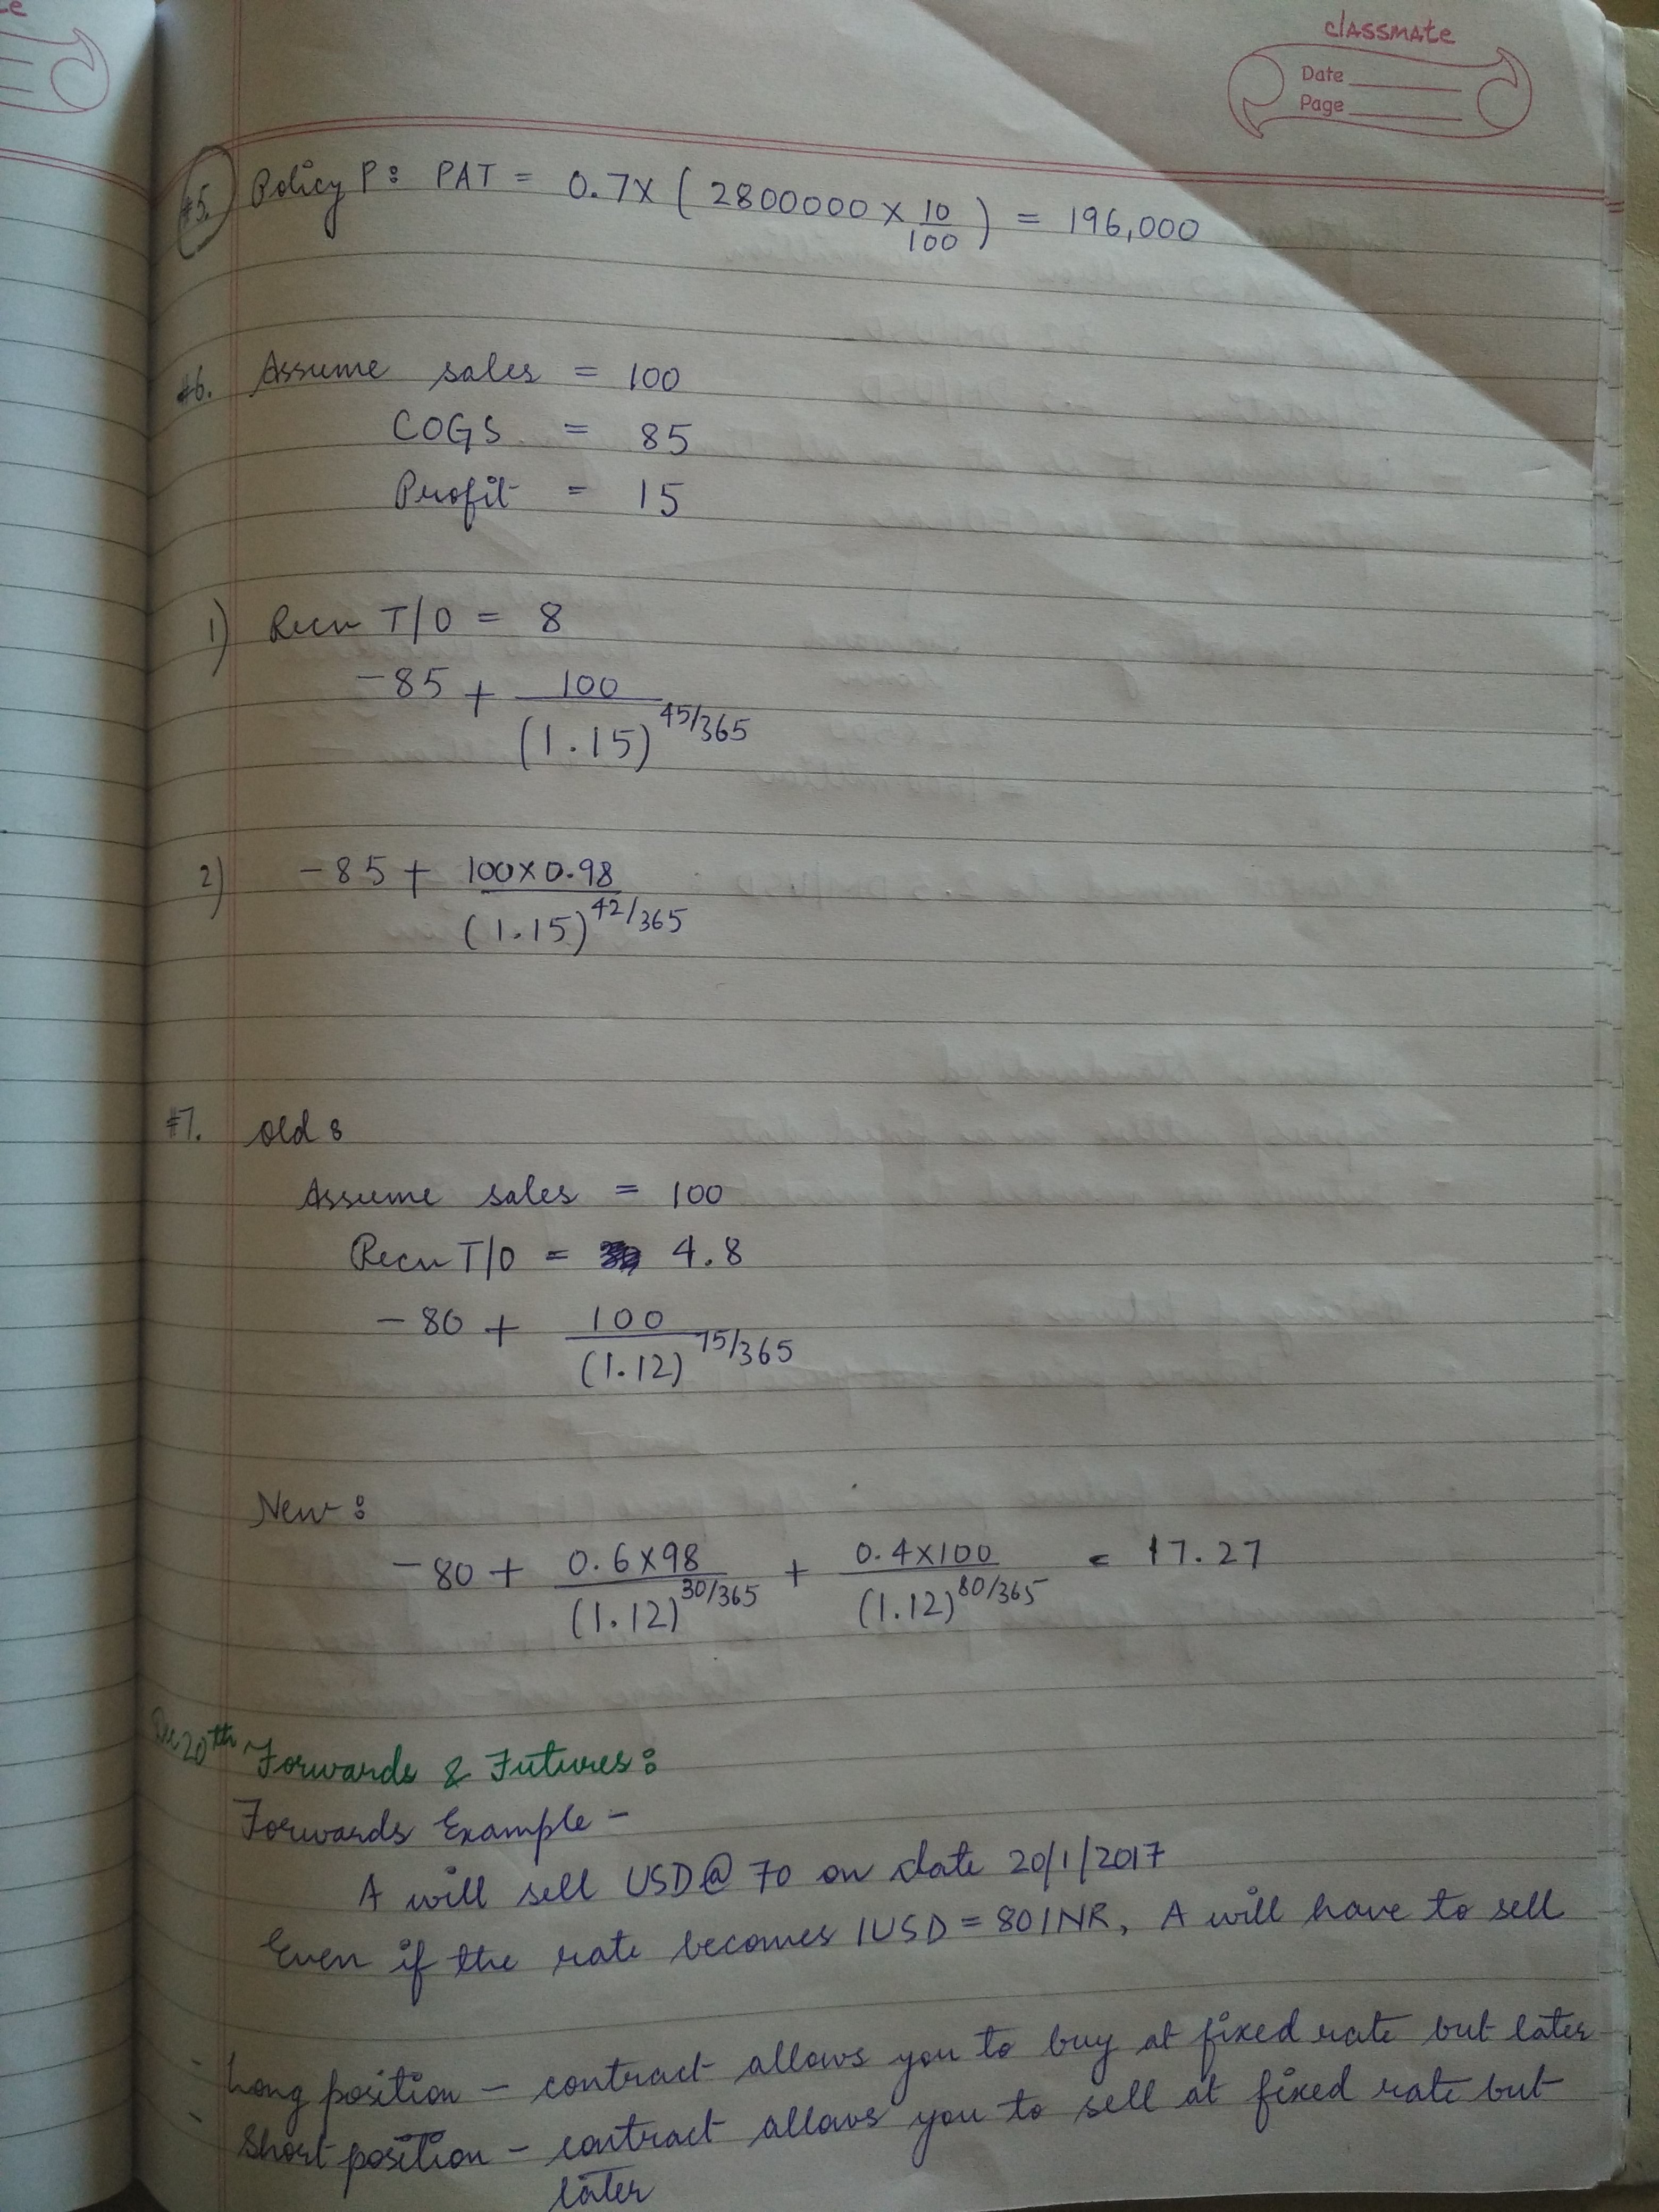 classmate
Date
Page
#5. Policy P: PAT = 0.7 × ( 2800000 × 10/100 ) = 196,000
#6. Assume sales = 100
COGS = 85
Profit = 15
1) Recv T/O = 8
-85 + 100/(1.15)^45/365
2) -85 + 100×0.98/(1.15)^42/365
#7. Old :
Assume sales = 100
Recv T/O = 4.8
-80 + 100/(1.12)^75/365
New :
-80 + 0.6×98/(1.12)^30/365 + 0.4×100/(1.12)^80/365 = 17.27
Dec 20th Forwards & Futures :
Forwards Example -
A will sell USD @ 70 on date 20/1/2017
Even if the rate becomes 1USD = 80INR, A will have to sell
- Long position - contract allows you to buy at fixed rate but later
- Short position - contract allows you to sell at fixed rate but
later